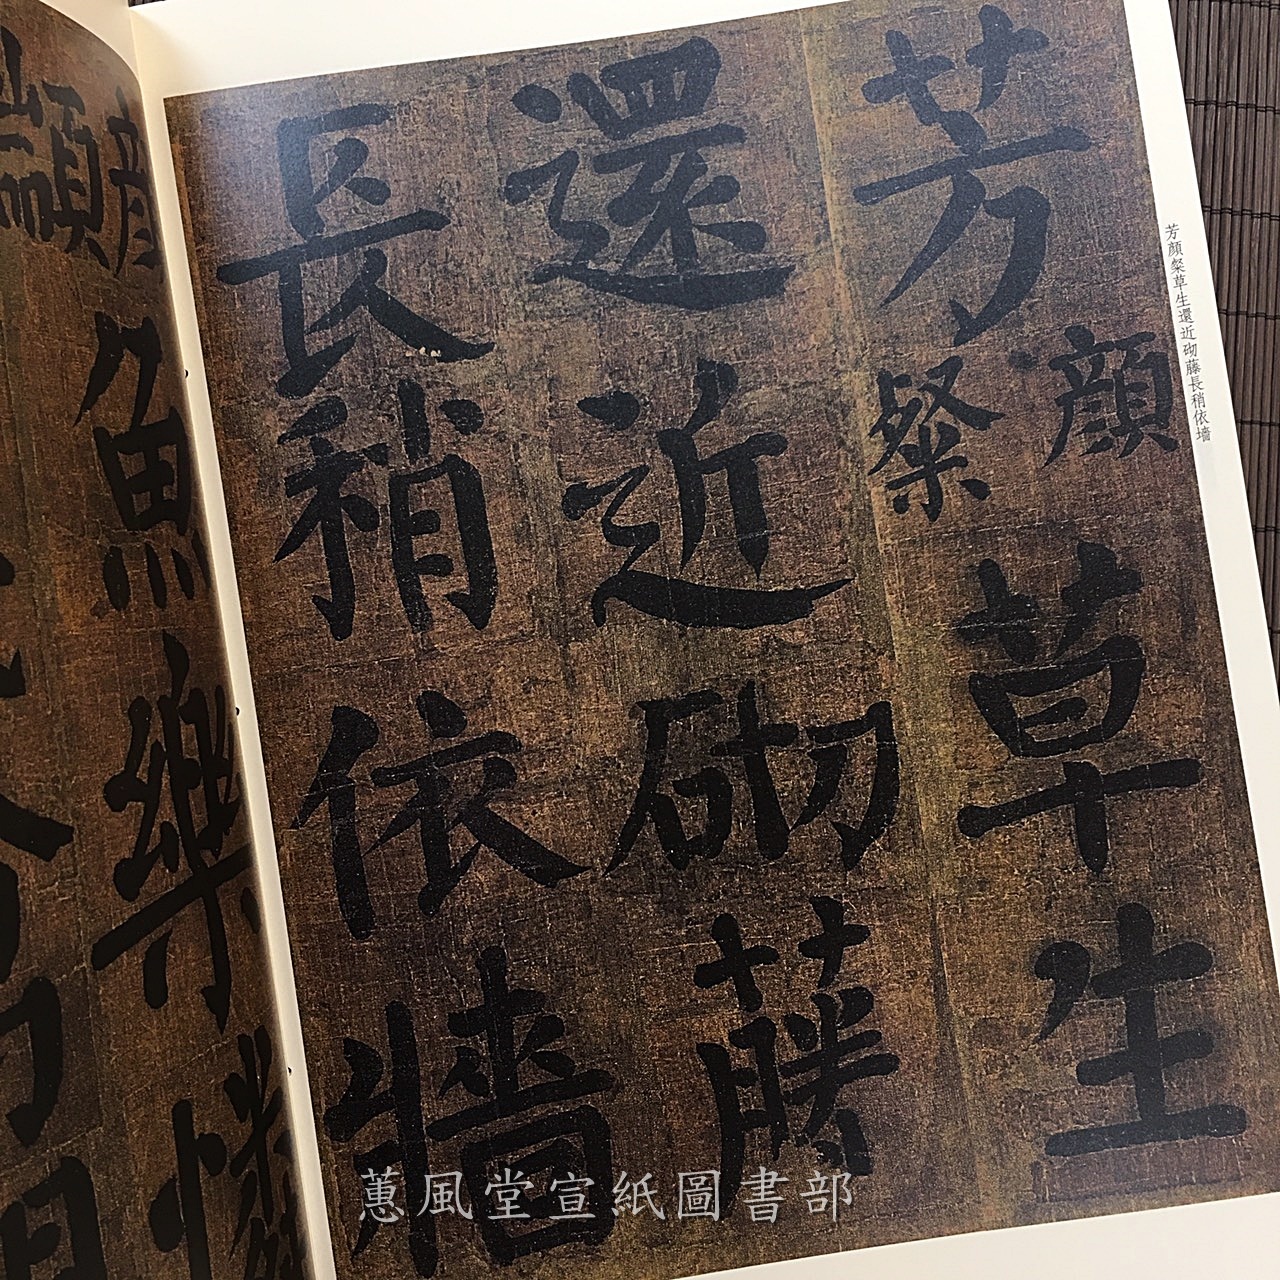 芳顏粲草生
還近砌藤
長稍依墻
芳顏粲草生還近砌藤長稍依墻
顏
魚樂憐
蕙風堂宣紙圖書部